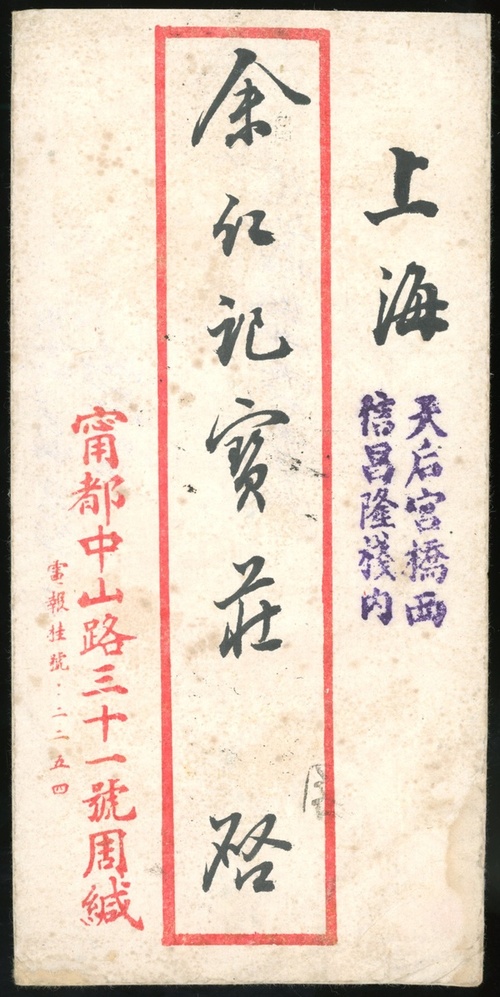 上海
天后宮橋西
信昌隆棧內
余仁記寶莊 啓
甯都中山路三十一號周緘
電報挂號：二二五四